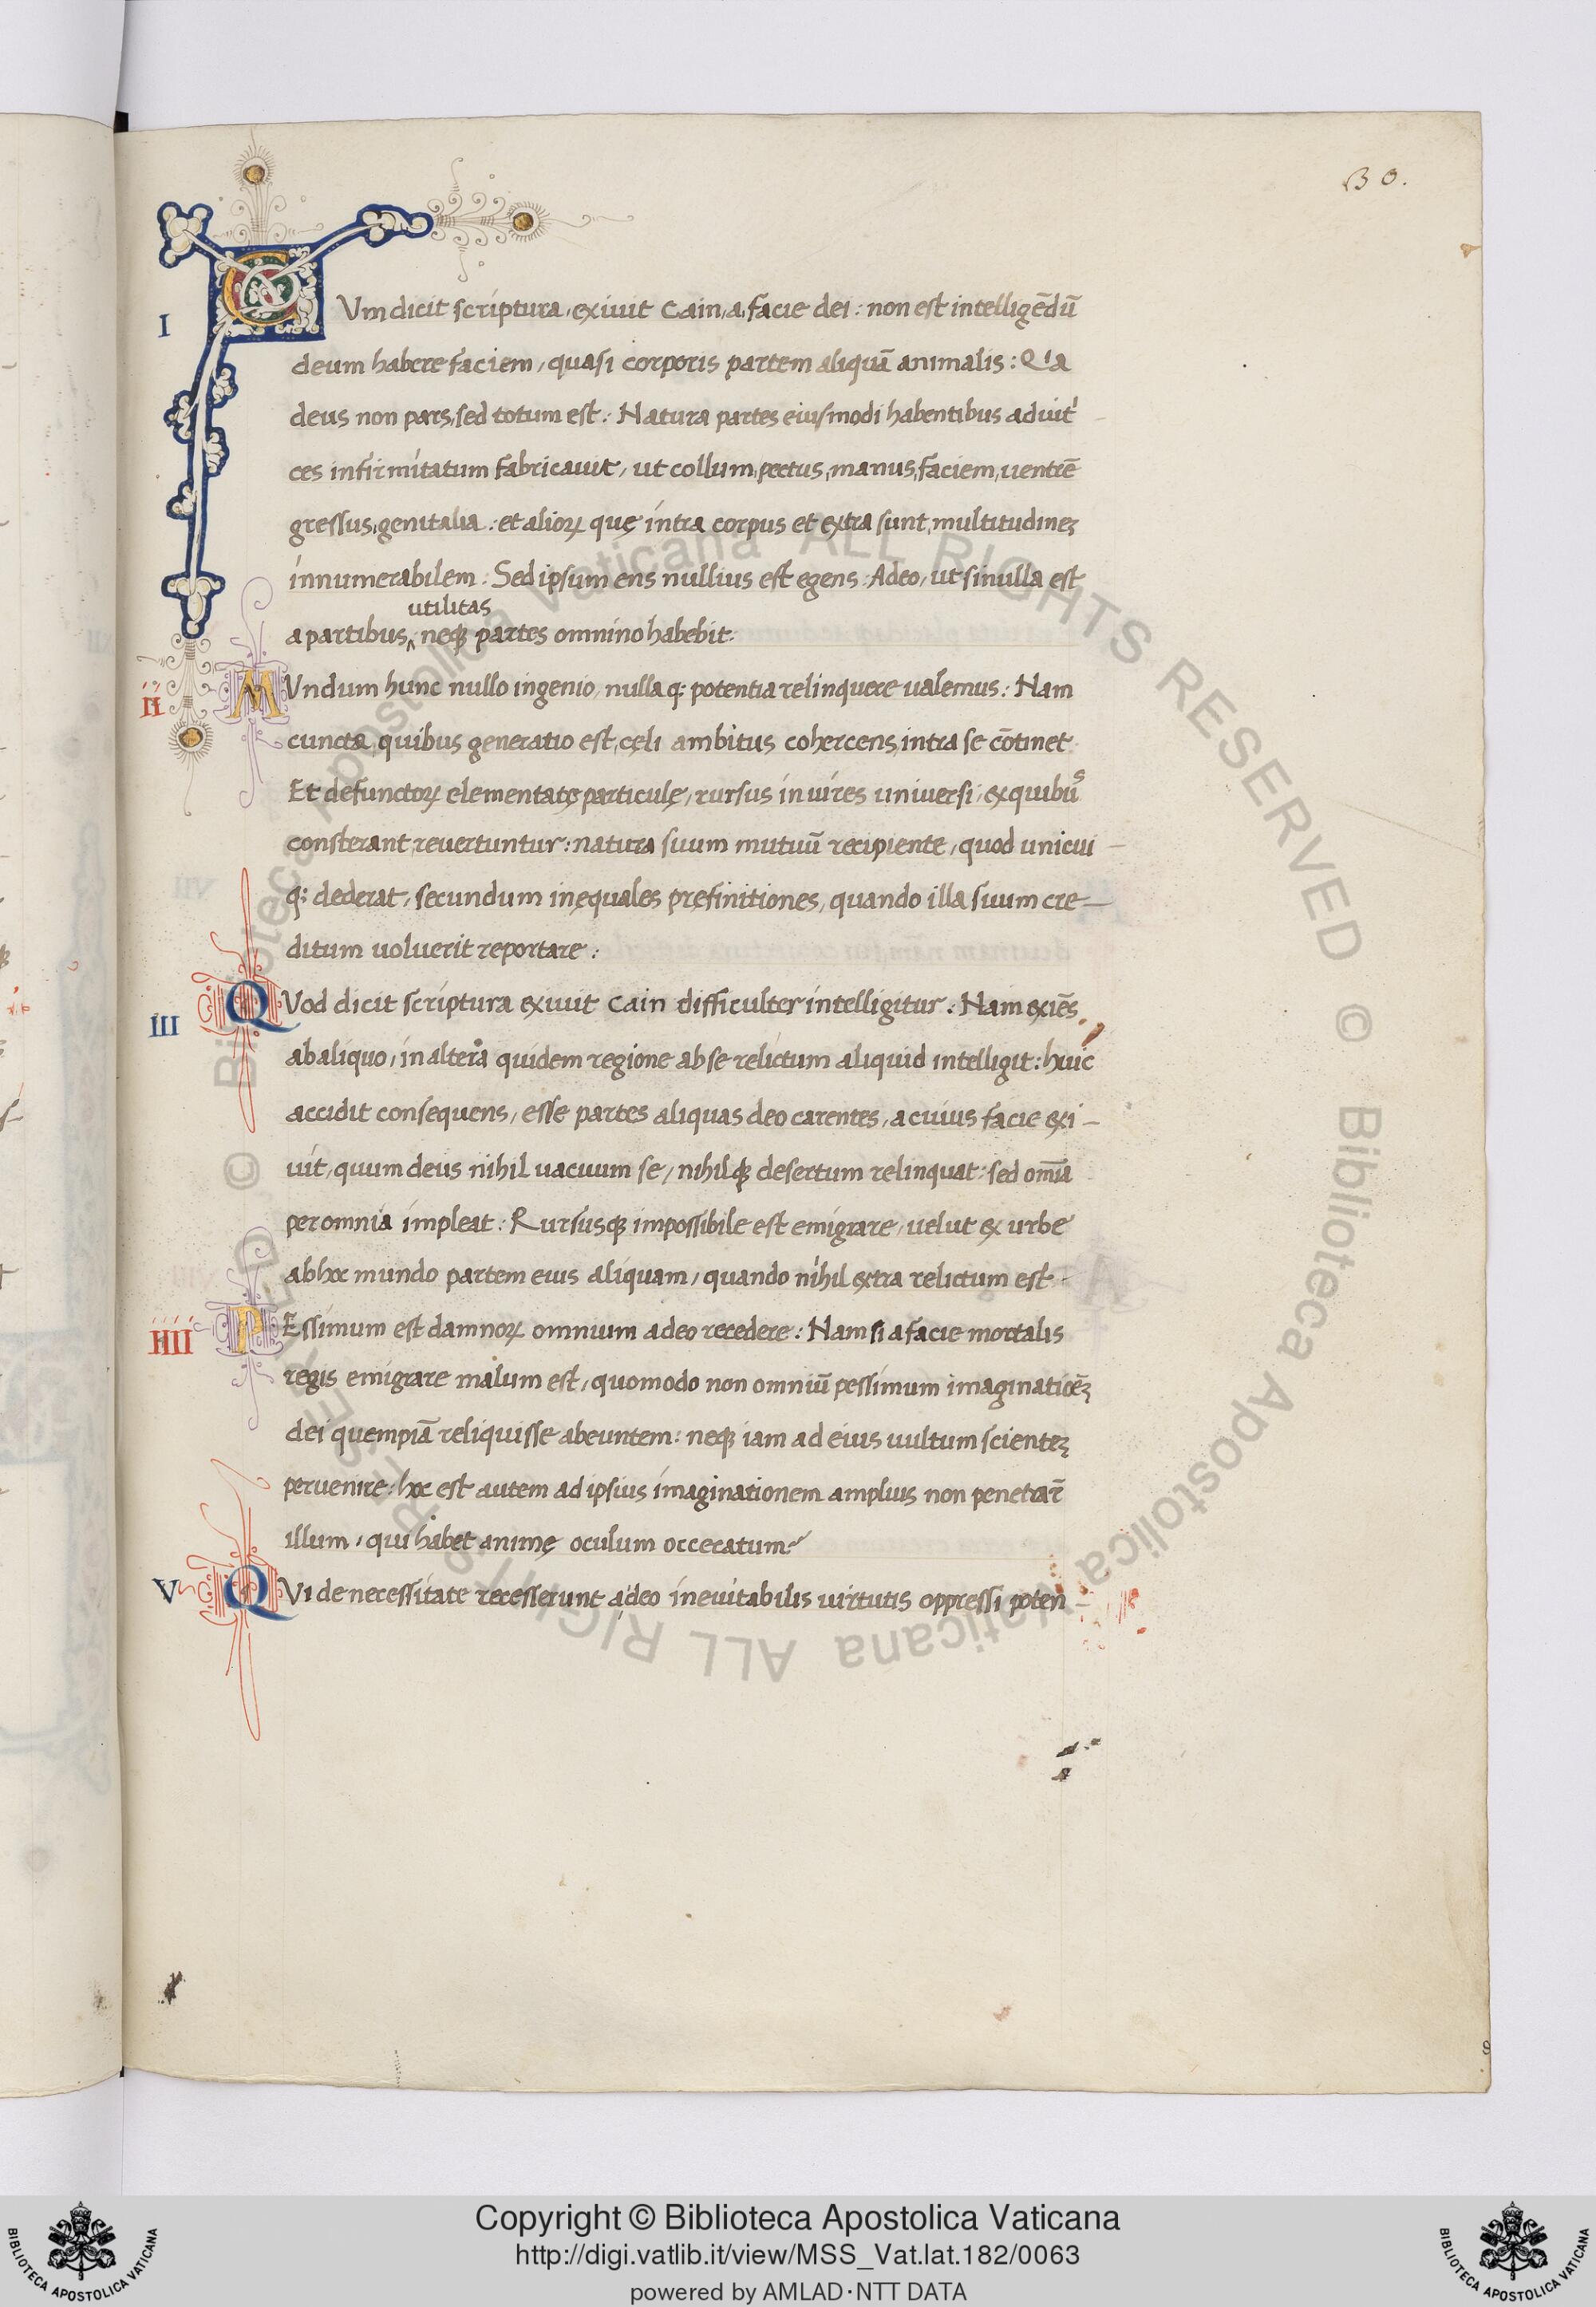 30.
I CVm dicit scriptura, exiuit Cain, a facie dei: non est intelligēdū
deum habere faciem, quasi corporis partem aliquā animalis: Qia
deus non pars, sed totum est: Natura partes eiusmodi habentibus aduit
ces infirmitatum fabricauit, ut collum, pectus, manus, faciem, uentrē
gressus, genitalia: et alioꝝ quę intra corpus et extra sunt, multitudineꝫ
innumerabilem: Sed ipsum ens nullius est egens: Adeo, ut si nulla est
utilitas
a partibus, neqꝫ partes omnino habebit:
II MVndum hunc nullo ingenio, nulla q: potentia relinquere ualemus: Nam
cuncta, quibus generatio est, cęli ambitus cohercens, intra se cōtinet
Et defunctoꝝ elementatę particulę, rursus in uires uniuersi, ex quibus
consterant, reuertuntur: natura suum mutuū recipiente, quod unicui
q: dederat, secundum inęquales pręfinitiones, quando illa suum cre–
ditum uoluerit reportare:
III QVod dicit scriptura exiuit Cain difficulter intelligitur: Nam exiēs
ab aliquo, in altera quidem regione ab se relictum aliquid intelligit: huic
accidit consequens, esse partes aliquas deo carentes, a cuius facie exi–
uit, quum deus nihil uacuum se, nihilqꝫ desertum relinquat: sed omīa
per omnia impleat: Rursusqꝫ impossibile est emigrare, uelut ex urbe
ab hoc mundo partem eius aliquam, quando nihil extra relictum est.
IIII PEssimum est damnoꝝ omnium a deo recedere: Nam si a facie mortalis
regis emigrare malum est, quomodo non omniū pessimum imaginatiōeꝫ
dei quempiā reliquisse abeuntem: neqꝫ iam ad eius uultum scienteꝫ
peruenire: hoc est autem ad ipsius imaginationem amplius non penetrar̄
illum, qui habet animę oculum occecatum:
V QVi de necessitate recesserunt adeo ineuitabilis uirtutis oppressi poten–
8
© Biblioteca Apostolica Vaticana ALL RIGHTS RESERVED © Biblioteca Apostolica Vaticana ALL RIGHTS RESERVED
Copyright © Biblioteca Apostolica Vaticana
http://digi.vatlib.it/view/MSS_Vat.lat.182/0063
powered by AMLAD·NTT DATA
BIBLIOTECA APOSTOLICA VATICANA
BIBLIOTECA APOSTOLICA VATICANA